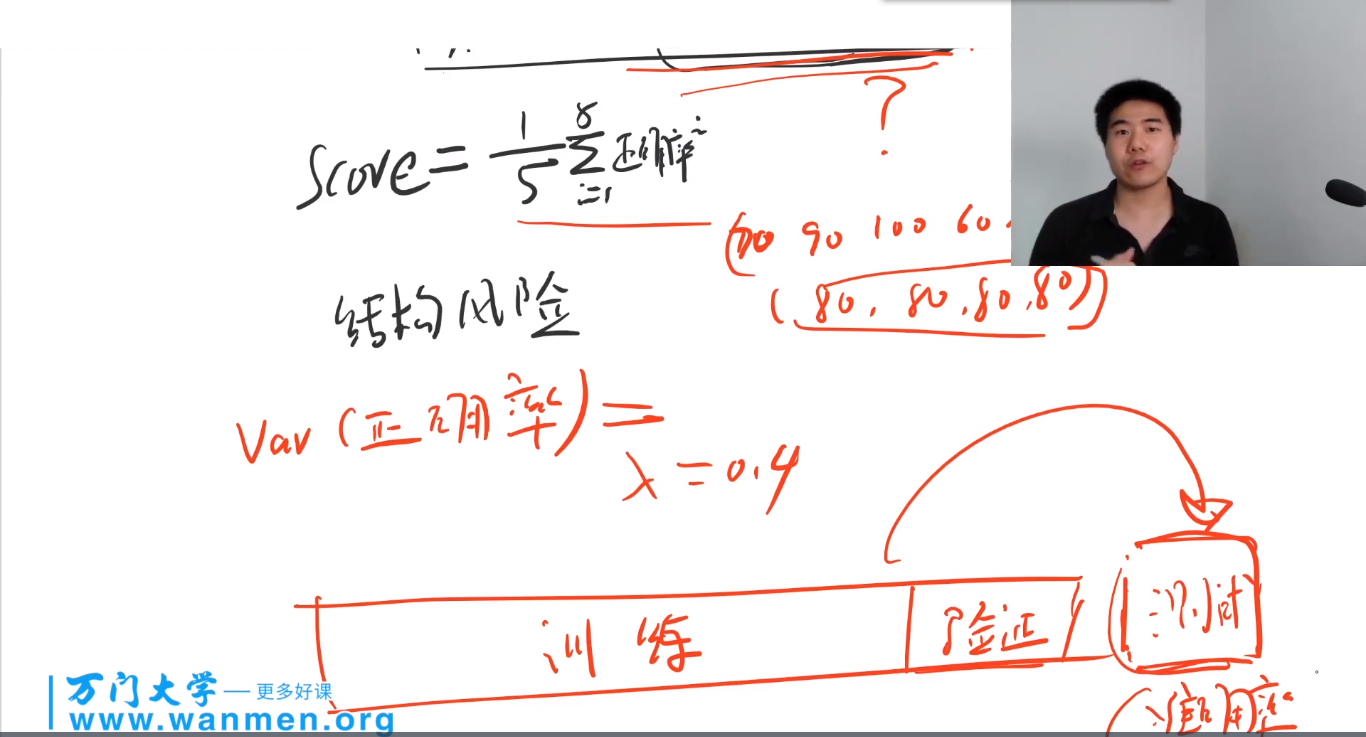 ?
Score = 1/5 8∑i=1 正确率i
70 90 100 60
(80, 80, 80, 80)
结构风险
Var (正确率) =
λ = 0.4
训练
验证
测试
万门大学 — 更多好课
www.wanmen.org